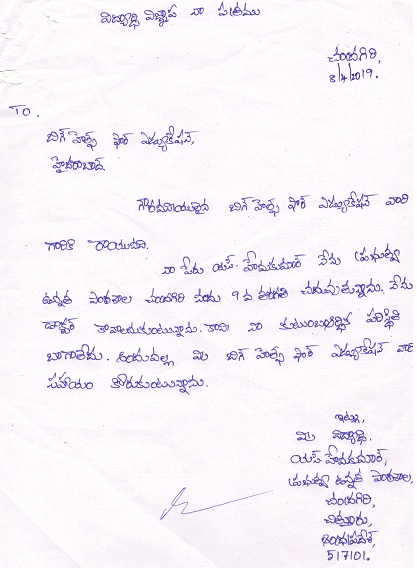 విద్యార్థి విజ్ఞాప నా పత్రము
చంద్రగిరి,
8/4/2019.
TO.
బిగ్ హెల్ప్ ఫర్ ఎడ్యుకేషన్,
హైదరాబాద్.
గౌరవనీయులైన బిగ్ హెల్ప్ ఫర్ ఎడ్యుకేషన్ వారి
గారికి రాయునది.
నా పేరు యస్. హేమకుమార్ నేను ప్రభుత్వ
ఉన్నత పాఠశాల చంద్రగిరి నందు 9 వ తరగతి చదువుతున్నాను. నేను
డాక్టర్ కావాలనుకుంటున్నాను. కానీ నా కుటుంబం పరిస్థితి
బాగాలేదు. అందువల్ల మీ బిగ్ హెల్ప్ ఫర్ ఎడ్యుకేషన్ వారి
సహాయం కోరుకుంటున్నాను.
ఇట్లు,
మీ విద్యార్థి.
యస్ హేమకుమార్,
ప్రభుత్వ ఉన్నత పాఠశాల,
చంద్రగిరి,
చిత్తూరు,
ఆంధ్రప్రదేశ్,
517101.